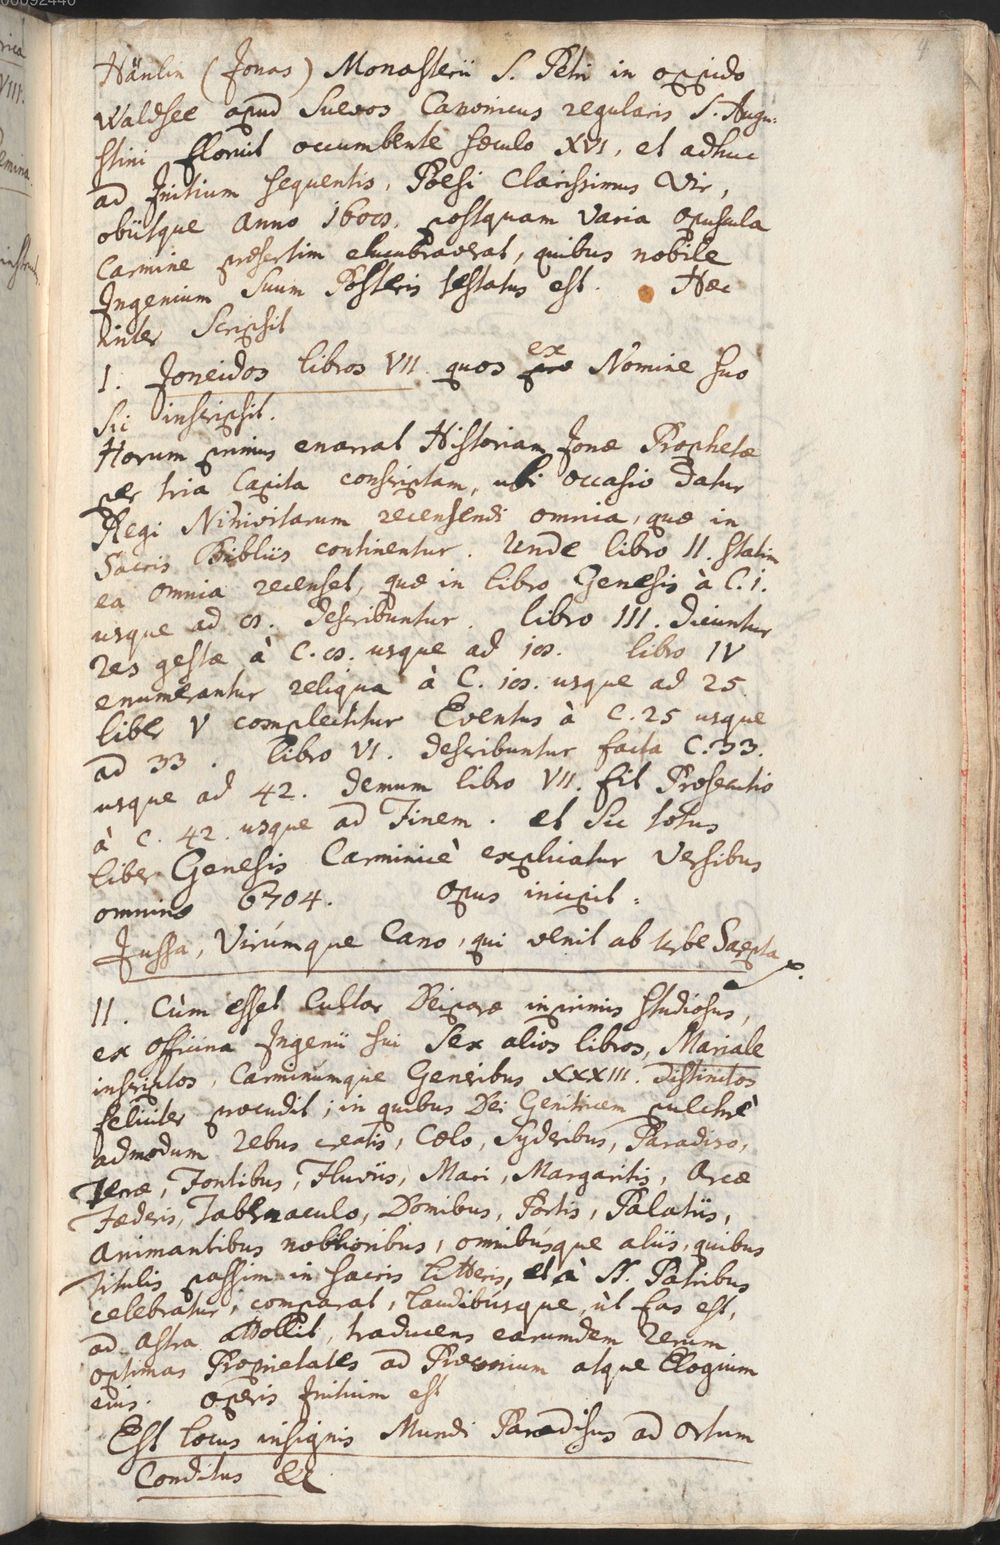 00092440
4
Hänlin (Jonas) Monasterii S. Petri in oppido
Waldsee apud Suevos Canonicus regularis S. Augu:
stini floruit occumbente sæculo XVI, et adhuc
ad Initium sequentis, Poesi Clarissimus Vir,
obiitque Anno postquam varia opuscula
Carmine præsertim elucubraverat, quibus nobile
Ingenium Suum Posteris testatus est. Hæc
inter Scripsit
I. Joneidos libros VII quos ex Nomine suo
sic inscripsit.
Horum primus enarrat Historiam Jonæ Prophetæ
per tria Capita conscriptam, ubi occasio datur
Regi Ninivitarum recensendi omnia, quæ in
Sacris Bibliis continentur. Unde libro II. statim
ea omnia recenset, quæ in libro Genesis à C. 1.
usque ad describuntur. libro III. dicuntur
res gestæ à C. usque ad libro IV
enumerantur reliqua à C. usque ad 25.
liber V complectitur Eventus à C. 25 usque
ad 33. libro VI. describuntur facta C. 33.
usque ad 42. demum libro VII. fit Prosecutio
à C. 42. usque ad Finem. et sic totus
liber Genesis Carminicè explicatur versibus
omnino 6704. opus incipit:
Jussa, Virúmque Cano, qui venit ab urbe Saepta
II. Cùm esset Cultor Deiparæ inprimis studiosus,
ex officina Ingenii sui sex alios libros, Mariale
inscriptos, Carminúmque Generibus XXXIII. distinctos
feliciter procudit; in quibus Dei Genitricem pulchrè
admodum rebus creatis, Cœlo, Syderibus, Paradiso,
Terræ, Fontibus, Fluviis, Mari, Margaritis, Arcæ
Fæderis, Tabernaculo, Domibus, Portis, Palatiis,
Animantibus nobilioribus, omnibúsque aliis, quibus
titulis passim in sacris litteris, et à SS. Patribus
celebratur, comparat, laudibúsque, ùt fas est,
ad astra attollit, traducens earumdem rerum
optimas Proprietates ad Præconium atque Elogium
eius. operis Initium est
Est locus insignis Mundi Paradisus ad ortum
Conditus &c